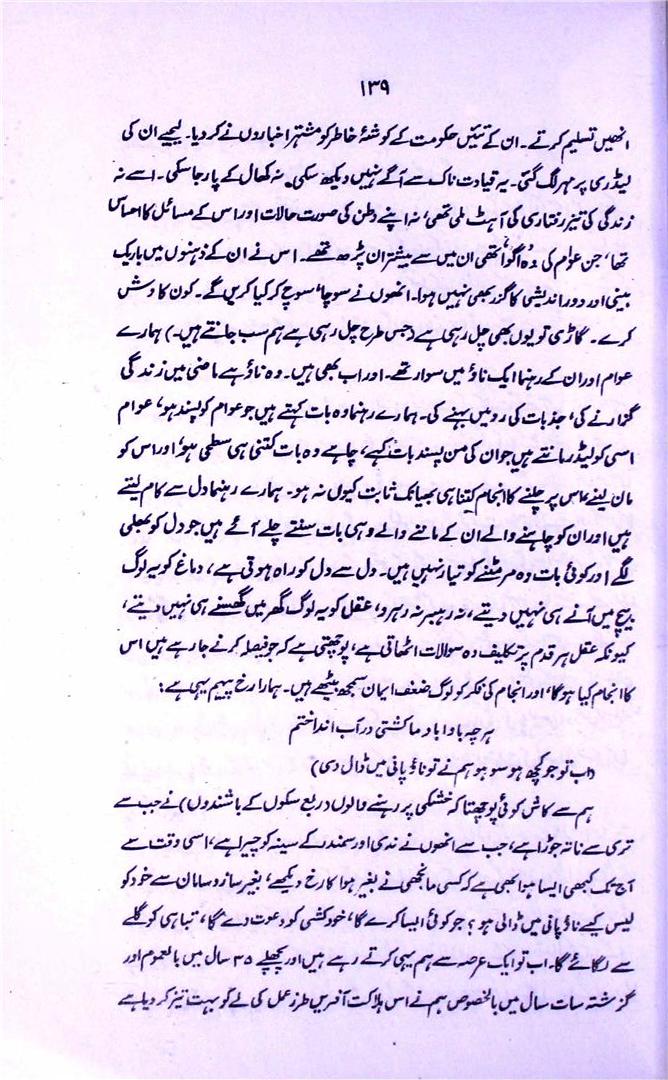 ۱۳۹
انھیں تسلیم کرتے۔ ان کے تئیں حکومت کے گوشۂ خاطر کو مشتہر اخباروں نے کر دیا۔ لیجیے ان کی
لیڈری پر مہر لگ گئی۔ یہ قیادت ناک سے آگے نہیں دیکھ سکی۔ نہ کھال کے پار جا سکی۔ اسے نہ
زندگی کی تیز رفتاری کی آہٹ ملی تھی، نہ اپنے وطن کی صورت حالات اور اس کے مسائل کا احساس
تھا، جن عوام کی وہ اگوا تھی ان میں سے بیشتر ان پڑھ تھے۔ اس نے ان کے ذہنوں میں باریک
بینی اور دور اندیشی کا گزر بھی نہیں ہوا۔ انھوں نے سوچا، سوچ کر کیا کریں گے۔ کون کاوش
کرے۔ گاڑی تو یوں بھی چل رہی ہے (جس طرح چل رہی ہے ہم سب جانتے ہیں۔) ہمارے
عوام اور ان کے رہنما ایک ناؤ میں سوار تھے۔ اور اب بھی ہیں۔ وہ ناؤ ہے ماضی میں زندگی
گزارنے کی، جذبات کی رو میں بہنے کی۔ ہمارے رہنما وہ بات کہتے ہیں جو عوام کو پسند ہو، عوام
اسی کو لیڈر مانتے ہیں جو ان کی من پسند بات کہے، چاہے وہ بات کتنی ہی سطحی ہو اور اس کو
مان لینے اس پر چلنے کا انجام کتنا ہی بھیانک ثابت کیوں نہ ہو۔ ہمارے رہنما دل سے کام لیتے
ہیں اور ان کو چاہنے والے ان کے ماننے والے وہی بات سنتے چلے آئے ہیں جو دل کو بھلی
لگے اور کوئی بات وہ سننے کو تیار نہیں ہیں۔ دل سے دل کو راہ ہوتی ہے، دماغ کو یہ لوگ
بیچ میں آنے ہی نہیں دیتے، نہ رہبر نہ رہرو، عقل کو یہ لوگ گھر میں گھسنے ہی نہیں دیتے،
کیونکہ عقل ہر قدم پر تکلیف دہ سوالات اٹھاتی ہے، پوچھتی ہے کہ جو فیصلہ کرنے جا رہے ہیں اس
کا انجام کیا ہوگا، اور انجام کی فکر کو لوگ ضعف ایمان سمجھ بیٹھے ہیں۔ ہمارا رخ پیہم یہی ہے:
ہر چہ باداباد ما کشتی در آب انداختم
(اب تو جو کچھ ہو سو ہو ہم نے تو ناؤ پانی میں ڈال دی)
ہم سے کاش کوئی پوچھتا کہ خشکی پر رہنے والوں (ربع سکوں کے باشندوں) نے جب سے
تری سے ناتہ جوڑا ہے، جب سے انھوں نے ندی اور سمندر کے سینہ کو چیرا ہے، اسی وقت سے
آج تک کبھی ایسا ہوا بھی ہے کہ کسی مانجھی نے بغیر ہوا کا رخ دیکھے، بغیر ساز و سامان سے خود کو
لیس کیے ناؤ پانی میں ڈالی ہو؟ جو کوئی ایسا کرے گا، خودکشی کو دعوت دے گا، تباہی کو گلے
سے لگائے گا۔ اب تو ایک عرصہ سے ہم یہی کرتے رہے ہیں اور پچھلے ۳۵ سال میں بالعموم اور
گزشتہ سات سال میں بالخصوص ہم نے اس ہلاکت آفریں طرز عمل کی لے کو بہت تیز کر دیا ہے